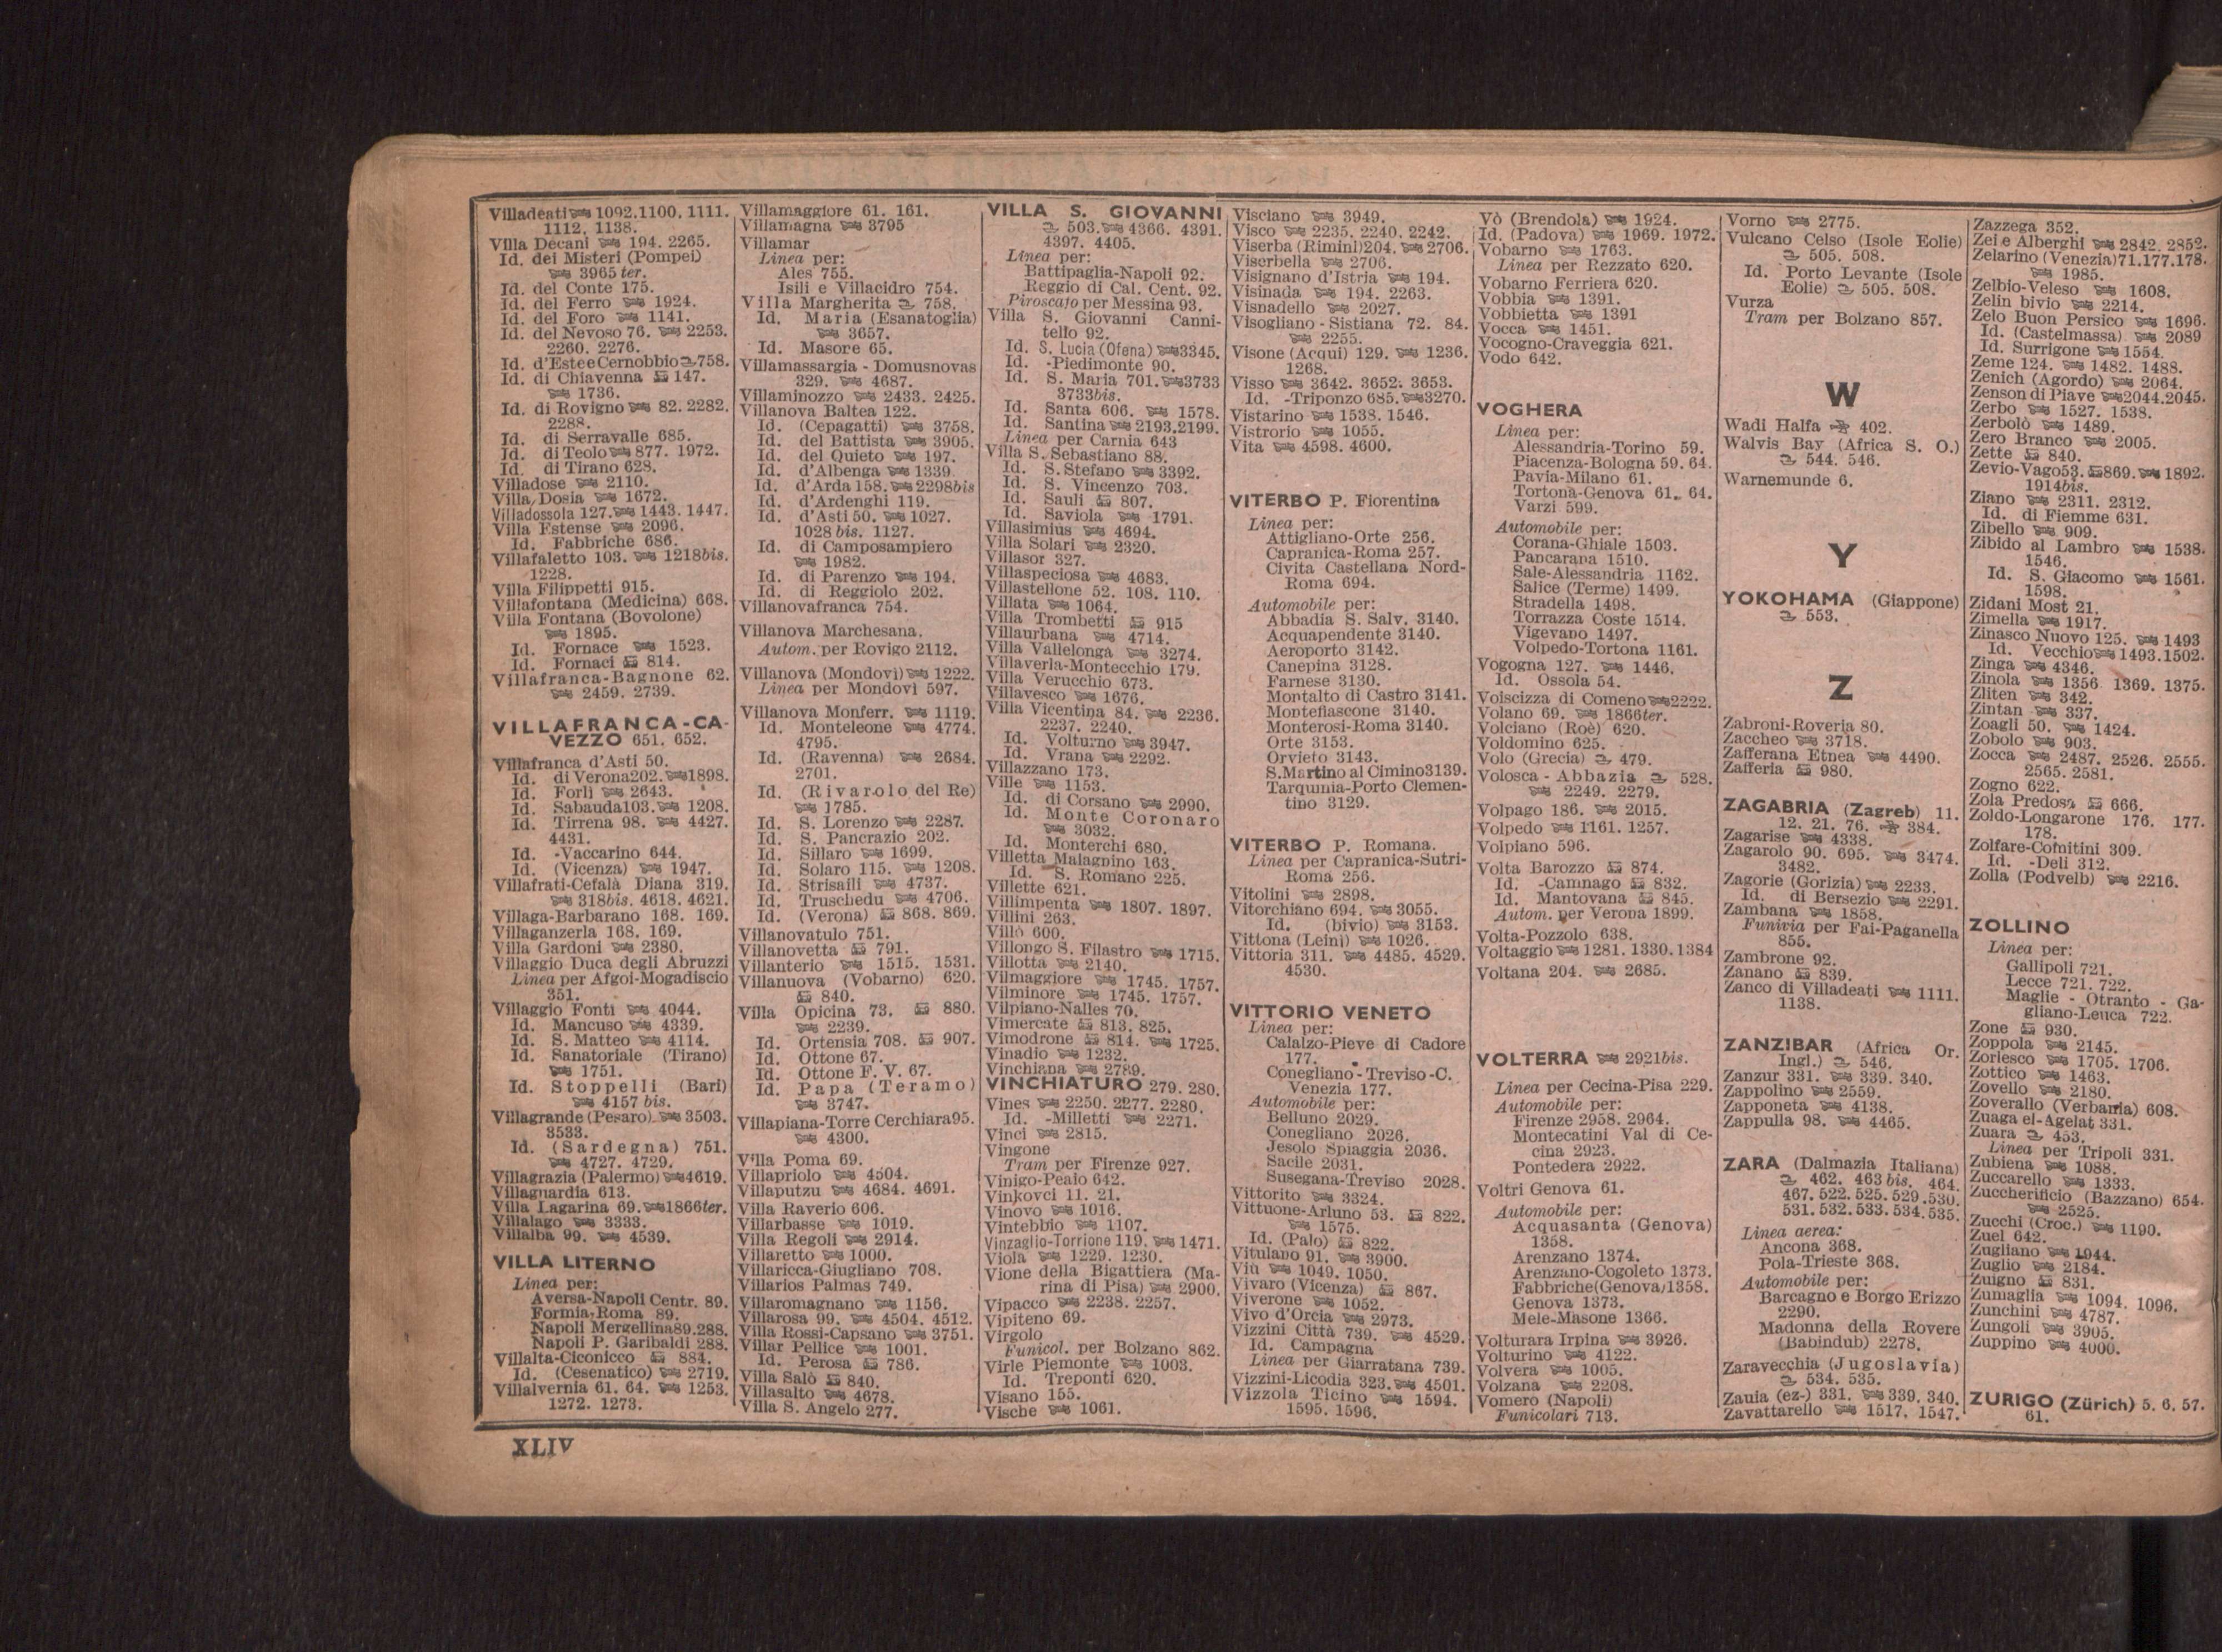 Villadeati 1092. 1100. 1111.
1112. 1138.
Villa Decani 194. 2265.
Id. dei Misteri (Pompei)
3965 ter.
Id. del Conte 175.
Id. del Ferro 1924.
Id. del Foro 1141.
Id. del Nevoso 76. 2253.
2260. 2276.
Id. d'Este e Cernobbio 758.
Id. di Chiavenna 147.
1736.
Id. di Rovigno 82. 2282.
2288.
Id. di Serravalle 685.
Id. di Teolo 877. 1972.
Id. di Tirano 628.
Villadose 2110.
Villa Dosia 1672.
Villadossola 127. 1443. 1447.
Villa Estense 2096.
Id. Fabbriche 686.
Villafaletto 103. 1218bis.
1228.
Villa Filippetti 915.
Villafontana (Medicina) 668.
Villa Fontana (Bovolone)
1895.
Id. Fornace 1523.
Id. Fornaci 814.
Villafranca-Bagnone 62.
2459. 2739.
VILLAFRANCA-CA-
VEZZO 651. 652.
Villafranca d'Asti 50.
Id. di Verona 202. 1898.
Id. Forlì 2643.
Id. Sabauda 103. 1208.
Id. Tirrena 98. 4427.
4431.
Id. -Vaccarino 644.
Id. (Vicenza) 1947.
Villafrati-Cefalà Diana 319.
318bis. 4618. 4621.
Villaga-Barbarano 168. 169.
Villaganzerla 168. 169.
Villa Gardoni 2380.
Villaggio Duca degli Abruzzi
Linea per Afgoi-Mogadiscio
351.
Villaggio Fonti 4044.
Id. Mancuso 4339.
Id. S. Matteo 4114.
Id. Sanatoriale (Tirano)
1751.
Id. Stoppelli (Bari)
4157 bis.
Villagrande (Pesaro) 3503.
3533.
Id. (Sardegna) 751.
4727. 4729.
Villagrazia (Palermo) 4619.
Villaguardia 613.
Villa Lagarina 69. 1866ter.
Villalago 3333.
Villalba 99. 4539.
VILLA LITERNO
Linea per:
Aversa-Napoli Centr. 89.
Formia-Roma 89.
Napoli Mergellina 89. 288.
Napoli P. Garibaldi 288.
Villalta-Ciconicco 884.
Id. (Cesenatico) 2719.
Villalvernia 61. 64. 1253.
1272. 1273.
Villamaggiore 61. 161.
Villamagna 3795
Villamar
Linea per:
Ales 755.
Isili e Villacidro 754.
Villa Margherita 758.
Id. Maria (Esanatoglia)
3657.
Id. Masore 65.
Villamassargia - Domusnovas
329. 4687.
Villaminozzo 2433. 2425.
Villanova Baltea 122.
Id. (Cepagatti) 3758.
Id. del Battista 3905.
Id. del Quieto 197.
Id. d'Albenga 1339.
Id. d'Arda 158. 2298bis
Id. d'Ardenghi 119.
Id. d'Asti 50. 1027.
1028 bis. 1127.
Id. di Camposampiero
1982.
Id. di Parenzo 194.
Id. di Reggiolo 202.
Villanovafranca 754.
Villanova Marchesana.
Autom. per Rovigo 2112.
Villanova (Mondovì) 1222.
Linea per Mondovì 597.
Villanova Monferr. 1119.
Id. Monteleone 4774.
4795.
Id. (Ravenna) 2684.
2701.
Id. (Rivarolo del Re)
1785.
Id. S. Lorenzo 2287.
Id. S. Pancrazio 202.
Id. Sillaro 1699.
Id. Solaro 115. 1208.
Id. Strisaili 4737.
Id. Truschedu 4706.
Id. (Verona) 868. 869.
Villanovatulo 751.
Villanovetta 791.
Villanterio 1515. 1531.
Villanuova (Vobarno) 620.
840.
Villa Opicina 73. 880.
2239.
Id. Ortensia 708. 907.
Id. Ottone 67.
Id. Ottone F. V. 67.
Id. Papa (Teramo)
3747.
Villapiana-Torre Cerchiara 95.
4300.
Villa Poma 69.
Villapriolo 4504.
Villaputzu 4684. 4691.
Villa Raverio 606.
Villarbasse 1019.
Villa Regoli 2914.
Villaretto 1000.
Villaricca-Giugliano 708.
Villarios Palmas 749.
Villaromagnano 1156.
Villarosa 99. 4504. 4512.
Villa Rossi-Capsano 3751.
Villar Pellice 1001.
Id. Perosa 786.
Villa Salò 840.
Villasalto 4678.
Villa S. Angelo 277.
VILLA S. GIOVANNI
503. 4366. 4391.
4397. 4405.
Linea per:
Battipaglia-Napoli 92.
Reggio di Cal. Cent. 92.
Piroscafo per Messina 93.
Villa S. Giovanni Canni-
tello 92.
Id. S. Lucia (Ofena) 3345.
Id. -Piedimonte 90.
Id. S. Maria 701. 3733
3733bis.
Id. Santa 606. 1578.
Id. Santina 2193. 2199.
Linea per Carnia 643
Villa S. Sebastiano 88.
Id. S. Stefano 3392.
Id. S. Vincenzo 703.
Id. Sauli 807.
Id. Saviola 1791.
Villasimius 4694.
Villa Solari 2320.
Villasor 327.
Villaspeciosa 4683.
Villastellone 52. 108. 110.
Villata 1064.
Villa Trombetti 915
Villaurbana 4714.
Villa Vallelonga 3274.
Villaverla-Montecchio 179.
Villa Verucchio 673.
Villavesco 1676.
Villa Vicentina 84. 2236.
2237. 2240.
Id. Volturno 3947.
Id. Vrana 2292.
Villazzano 173.
Ville 1153.
Id. di Corsano 2990.
Id. Monte Coronaro
3032.
Id. Monterchi 680.
Villetta Malagnino 163.
Id. S. Romano 225.
Villette 621.
Villimpenta 1807. 1897.
Villini 263.
Villò 600.
Villongo S. Filastro 1715.
Villotta 2140.
Vilmaggiore 1745. 1757.
Vilminore 1745. 1757.
Vilpiano-Nalles 70.
Vimercate 813. 825.
Vimodrone 814. 1725.
Vinadio 1232.
Vinchiana 2789.
VINCHIATURO 279. 280.
Vines 2250. 2277. 2280.
Id. -Milletti 2271.
Vinci 2815.
Vingone
Tram per Firenze 927.
Vinigo-Peaio 642.
Vinkovci 11. 21.
Vinovo 1016.
Vintebbio 1107.
Vinzaglio-Torrione 119. 1471.
Viola 1229. 1230.
Vione della Bigattiera (Ma-
rina di Pisa) 2900.
Vipacco 2238. 2257.
Vipiteno 69.
Virgolo
Funicol. per Bolzano 862.
Virle Piemonte 1003.
Id. Treponti 620.
Visano 155.
Vische 1061.
Visciano 3949.
Visco 2235. 2240. 2242.
Viserba (Rimini) 204. 2706.
Viserbella 2706.
Visignano d'Istria 194.
Visinada 194. 2263.
Visnadello 2027.
Visogliano - Sistiana 72. 84.
2255.
Visone (Acqui) 129. 1236.
1268.
Visso 3642. 3652. 3653.
Id. -Triponzo 685. 3270.
Vistarino 1538. 1546.
Vistrorio 1055.
Vita 4598. 4600.
VITERBO P. Fiorentina
Linea per:
Attigliano-Orte 256.
Capranica-Roma 257.
Civita Castellana Nord-
Roma 694.
Automobile per:
Abbadia S. Salv. 3140.
Acquapendente 3140.
Aeroporto 3142.
Canepina 3128.
Farnese 3130.
Montalto di Castro 3141.
Montefiascone 3140.
Monterosi-Roma 3140.
Orte 3153.
Orvieto 3143.
S. Martino al Cimino 3139.
Tarquinia-Porto Clemen-
tino 3129.
VITERBO P. Romana.
Linea per Capranica-Sutri-
Roma 256.
Vitolini 2898.
Vitorchiano 694. 3055.
Id. (bivio) 3153.
Vittona (Leinì) 1026.
Vittoria 311. 4485. 4529.
4530.
VITTORIO VENETO
Linea per:
Calalzo-Pieve di Cadore
177.
Conegliano - Treviso -C.
Venezia 177.
Automobile per:
Belluno 2029.
Conegliano 2026.
Jesolo Spiaggia 2036.
Sacile 2031.
Susegana-Treviso 2028.
Vittorito 3324.
Vittuone-Arluno 53. 822.
1575.
Id. (Palo) 822.
Vitulano 91. 3900.
Viù 1049. 1050.
Vivaro (Vicenza) 867.
Viverone 1052.
Vivo d'Orcia 2973.
Vizzini Città 739. 4529.
Id. Campagna
Linea per Giarratana 739.
Vizzini-Licodia 323. 4501.
Vizzola Ticino 1594.
1595. 1596.
Vò (Brendola) 1924.
Id. (Padova) 1969. 1972.
Vobarno 1763.
Linea per Rezzato 620.
Vobarno Ferriera 620.
Vobbia 1391.
Vobbietta 1391
Vocca 1451.
Vocogno-Craveggia 621.
Vodo 642.
VOGHERA
Linea per:
Alessandria-Torino 59.
Piacenza-Bologna 59. 64.
Pavia-Milano 61.
Tortona-Genova 61. 64.
Varzi 599.
Automobile per:
Corana-Ghiale 1503.
Pancarana 1510.
Sale-Alessandria 1162.
Salice (Terme) 1499.
Stradella 1498.
Torrazza Coste 1514.
Vigevano 1497.
Volpedo-Tortona 1161.
Vogogna 127. 1446.
Id. Ossola 54.
Voiscizza di Comeno 2222.
Volano 69. 1866ter.
Volciano (Roè) 620.
Voldomino 625.
Volo (Grecia) 479.
Volosca - Abbazia 528.
2249. 2279.
Volpago 186. 2015.
Volpedo 1161. 1257.
Volpiano 596.
Volta Barozzo 874.
Id. -Camnago 832.
Id. Mantovana 845.
Autom. per Verona 1899.
Volta-Pozzolo 638.
Voltaggio 1281. 1330. 1384
Voltana 204. 2685.
VOLTERRA 2921bis.
Linea per Cecina-Pisa 229.
Automobile per:
Firenze 2958. 2964.
Montecatini Val di Ce-
cina 2923.
Pontedera 2922.
Voltri Genova 61.
Automobile per:
Acquasanta (Genova)
1358.
Arenzano 1374.
Arenzano-Cogoleto 1373.
Fabbriche (Genova) 1358.
Genova 1373.
Mele-Masone 1366.
Volturara Irpina 3926.
Volturino 4122.
Volvera 1005.
Volzana 2208.
Vomero (Napoli)
Funicolari 713.
Vorno 2775.
Vulcano Celso (Isole Eolie)
505. 508.
Id. Porto Levante (Isole
Eolie) 505. 508.
Vurza
Tram per Bolzano 857.
W
Wadi Halfa 402.
Walvis Bay (Africa S. O.)
544. 546.
Warnemunde 6.
Y
YOKOHAMA (Giappone)
553.
Z
Zabroni-Roveria 80.
Zaccheo 3718.
Zafferana Etnea 4490.
Zafferia 980.
ZAGABRIA (Zagreb) 11.
12. 21. 76. 384.
Zagarise 4338.
Zagarolo 90. 695. 3474.
3482.
Zagorie (Gorizia) 2233.
Id. di Bersezio 2291.
Zambana 1858.
Funivia per Fai-Paganella
855.
Zambrone 92.
Zanano 839.
Zanco di Villadeati 1111.
1138.
ZANZIBAR (Africa Or.
Ingl.) 546.
Zanzur 331. 339. 340.
Zappolino 2559.
Zapponeta 4138.
Zappulla 98. 4465.
ZARA (Dalmazia Italiana)
462. 463 bis. 464.
467. 522. 525. 529. 530.
531. 532. 533. 534. 535.
Linea aerea:
Ancona 368.
Pola-Trieste 368.
Automobile per:
Barcagno e Borgo Erizzo
2290.
Madonna della Rovere
(Babindub) 2278.
Zaravecchia (Jugoslavia)
534. 535.
Zauia (ez-) 331. 339. 340.
Zavattarello 1517. 1547.
Zazzega 352.
Zei e Alberghi 2842. 2852.
Zelarino (Venezia) 71. 177. 178.
1985.
Zelbio-Veleso 1608.
Zelin bivio 2214.
Zelo Buon Persico 1696.
Id. (Castelmassa) 2089
Id. Surrigone 1554.
Zeme 124. 1482. 1488.
Zenich (Agordo) 2064.
Zenson di Piave 2044. 2045.
Zerbo 1527. 1538.
Zerbolò 1489.
Zero Branco 2005.
Zette 840.
Zevio-Vago 53. 869. 1892.
1914bis.
Ziano 2311. 2312.
Id. di Fiemme 631.
Zibello 909.
Zibido al Lambro 1538.
1546.
Id. S. Giacomo 1561.
1598.
Zidani Most 21.
Zimella 1917.
Zinasco Nuovo 125. 1493
Id. Vecchio 1493. 1502.
Zinga 4346.
Zinola 1356 1369. 1375.
Zliten 342.
Zintan 337.
Zoagli 50. 1424.
Zobolo 903.
Zocca 2487. 2526. 2555.
2565. 2581.
Zogno 622.
Zola Predosa 666.
Zoldo-Longarone 176. 177.
178.
Zolfare-Cofnitini 309.
Id. -Deli 312.
Zolla (Podvelb) 2216.
ZOLLINO
Linea per:
Gallipoli 721.
Lecce 721. 722.
Maglie - Otranto - Ga-
gliano-Leuca 722.
Zone 930.
Zoppola 2145.
Zorlesco 1705. 1706.
Zottico 1463.
Zovello 2180.
Zoverallo (Verbania) 608.
Zuaga el-Agelat 331.
Zuara 453.
Linea per Tripoli 331.
Zubiena 1088.
Zuccarello 1333.
Zuccherificio (Bazzano) 654.
2525.
Zucchi (Croc.) 1190.
Zuel 642.
Zugliano 1944.
Zuglio 2184.
Zuigno 831.
Zumaglia 1094. 1096.
Zunchini 4787.
Zungoli 3905.
Zuppino 4000.
ZURIGO (Zürich) 5. 6. 57.
61.
XLIV